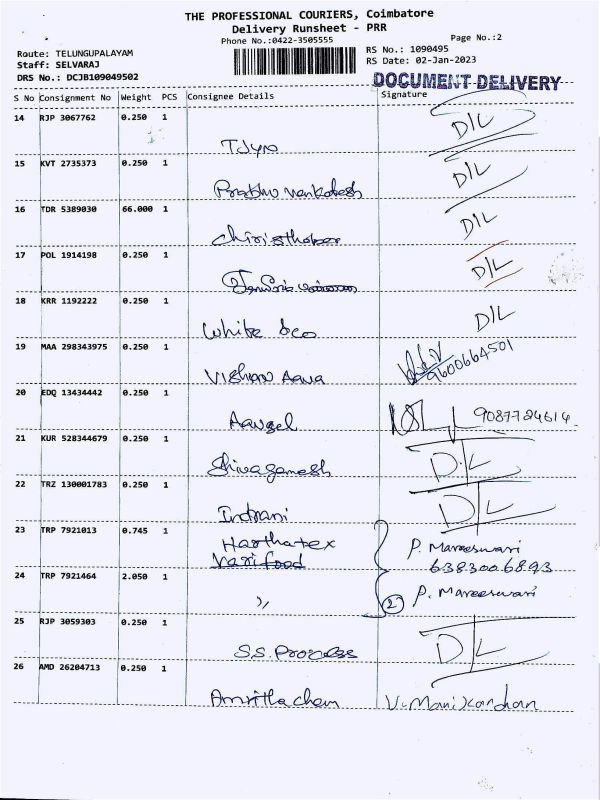 THE PROFESSIONAL COURIERS, Coimbatore
Delivery Runsheet - PRR
Phone No.:0422-3505555
Page No.:2
Route: TELUNGUPALAYAM
Staff: SELVARAJ
DRS No.: DCJB109049502
RS No.: 1090495
RS Date: 02-Jan-2023
DOCUMENT DELIVERY
S No Consignment No Weight PCS Consignee Details Signature
14 RJP 3067762 0.250 1 D/L
15 KVT 2735373 0.250 1 D/L
Prabhu Venkatesh
16 TDR 5389030 66.000 1 D/L
17 POL 1914198 0.250 1 D/L
18 KRR 1192222 0.250 1 D/L
White &co
19 MAA 298343975 0.250 1
9600664501
20 EDQ 13434442 0.250 1
9087724614
21 KUR 528344679 0.250 1 D/L
Shivaganesh
22 TRZ 130001783 0.250 1 D/L
Indrani
23 TRP 7921013 0.745 1
Harthatex P. Mareeswari
Varifood 6383006893
24 TRP 7921464 2.050 1
,, 2 P. Mareeswari
25 RJP 3059303 0.250 1 D/L
S.S. Process
26 AMD 26204713 0.250 1
Amritha chem V. Manikandan